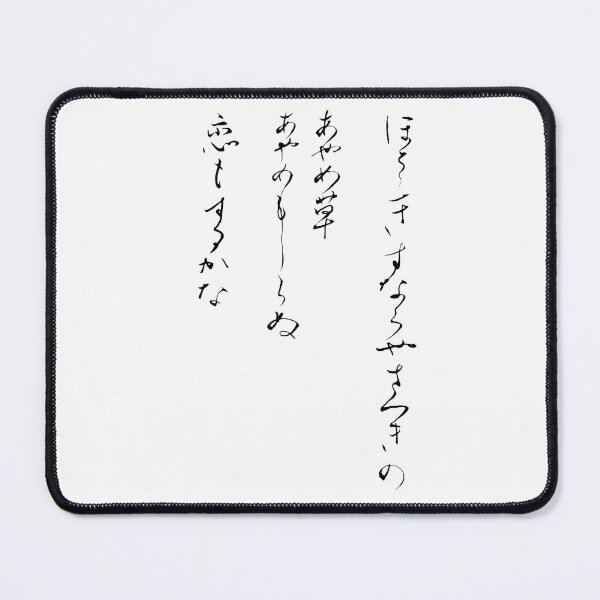 ほとゝきすなくやさつきの
あやめ草
あやめもしらぬ
恋もするかな